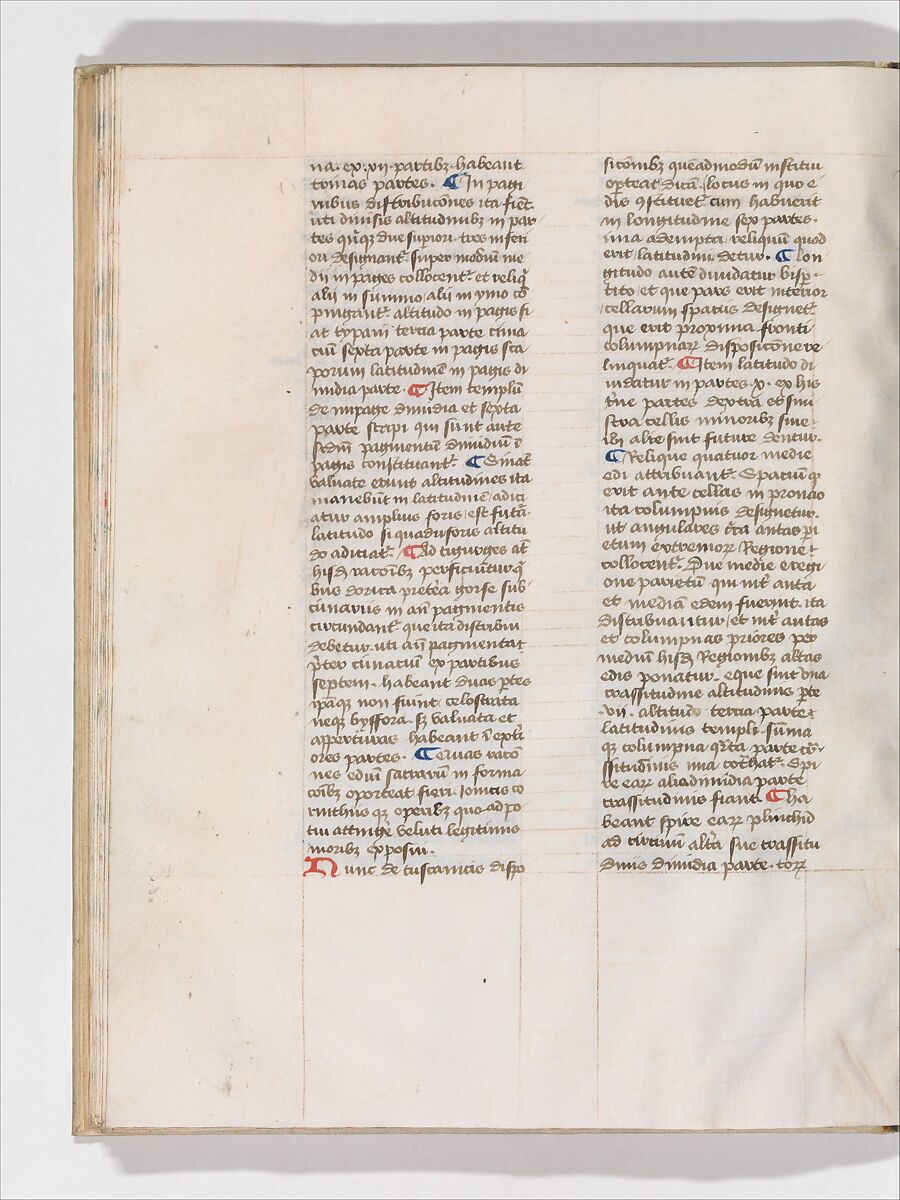 na. ex .xii. partibꝫ habeant
ternas partes. ¶ In pagi
nibus distribucōnes ita fient
uti diuisis altitudinibꝫ in par
tes qn̄qꝫ due supiori tres inferi
ori designant᷑. super mediū me
dii in pages collocent᷑. et reliq̄
alii in summo / alii in ymo cō
pingant᷑. altitudo in pagis fi
at tỳpani tercia parte cima
ciū sexta parte in pagis sca
porum latitudinē in pagis di
midia parte. ¶ Item templū
de inpage dimidia et sexta
parte scapi qui sunt ante
scd̄m pagmentū dimidiū ī
pagis constituant᷑. ¶ Sin aūt
valuate erunt altitudines ita
manebūt in latitudinē / adici
atur amplius foris / est futā
latitudo si quadriforis altitu
do adiciat᷑. ¶ Ad tiguiges at̄
hisdꝫ racōibꝫ perficiunt᷑ q̄
bus dorica pretēa gorse sub
cunarius in an̄ pagmentis
circundant᷑. que ita distribui
debetur. uti an̄ pagmentat
pr̄ter cimaciū ex partibus
septem. habeant duas ptes
ipāqꝫ non fiunt celostrata
neqꝫ byssora. sꝫ valuata et
apperturas habeant ī exti
ores partes. ¶ Cuias racō
nes ediū sacrarū in forma
coībꝫ oporteat fieri. ionicis co
rinthiis qꝫ operibꝫ quo ad po
tui attingere veluti legitimis
moribꝫ exposui.
Nunc de tuscanicis dispo
sicōnibꝫ quēadmodū institui
opteat dicā. locus in quo e
dis ꝯstituet᷑ cum habuerit
in longitudine sex partes.
una adempta. reliquū quod
erit latitudini detur. ¶ Lon
gitudo autē diuidatur bip
tito. et que pars erit interior
cellarum spatiis designet᷑.
que erit proxima fronti
columpnarꝝ disposicōne re
linquat᷑. ¶ Item latitudo di
uidatur in partes .x. ex his
t̄ne partes dextra et sini
stra cellis minoribꝫ siue
ibi alie sint future dentur.
¶ Relique quatuor medie
edi attribuant᷑. Spacium q
erit ante cellas in pronao
ita columpnis designetur.
ut angulares cōtra antas pi
etum extremorꝝ Regione
collocent᷑. Due medie e regi
one parietū qui int̄ anta
et mediā edem fuerint. ita
distribuantur / et int̄ antas
et columpnas priores per
mediū hisdꝫ Regionibꝫ altas
edis ponatur. eque sint ima
crassitudine altitudinis pte
.vii. altitudo tercia parte
latitudinis templi. sūma
qꝫ columpna q̄rta parte cra
ssitudinis ima cotrhat᷑. Spi
re earꝝ alia dimidia parte
crassitudinis fiant. ¶ Ha
beant spire earꝝ plinthid
ad circinū altā sue crassitu
dinis dimidia parte. torꝝ